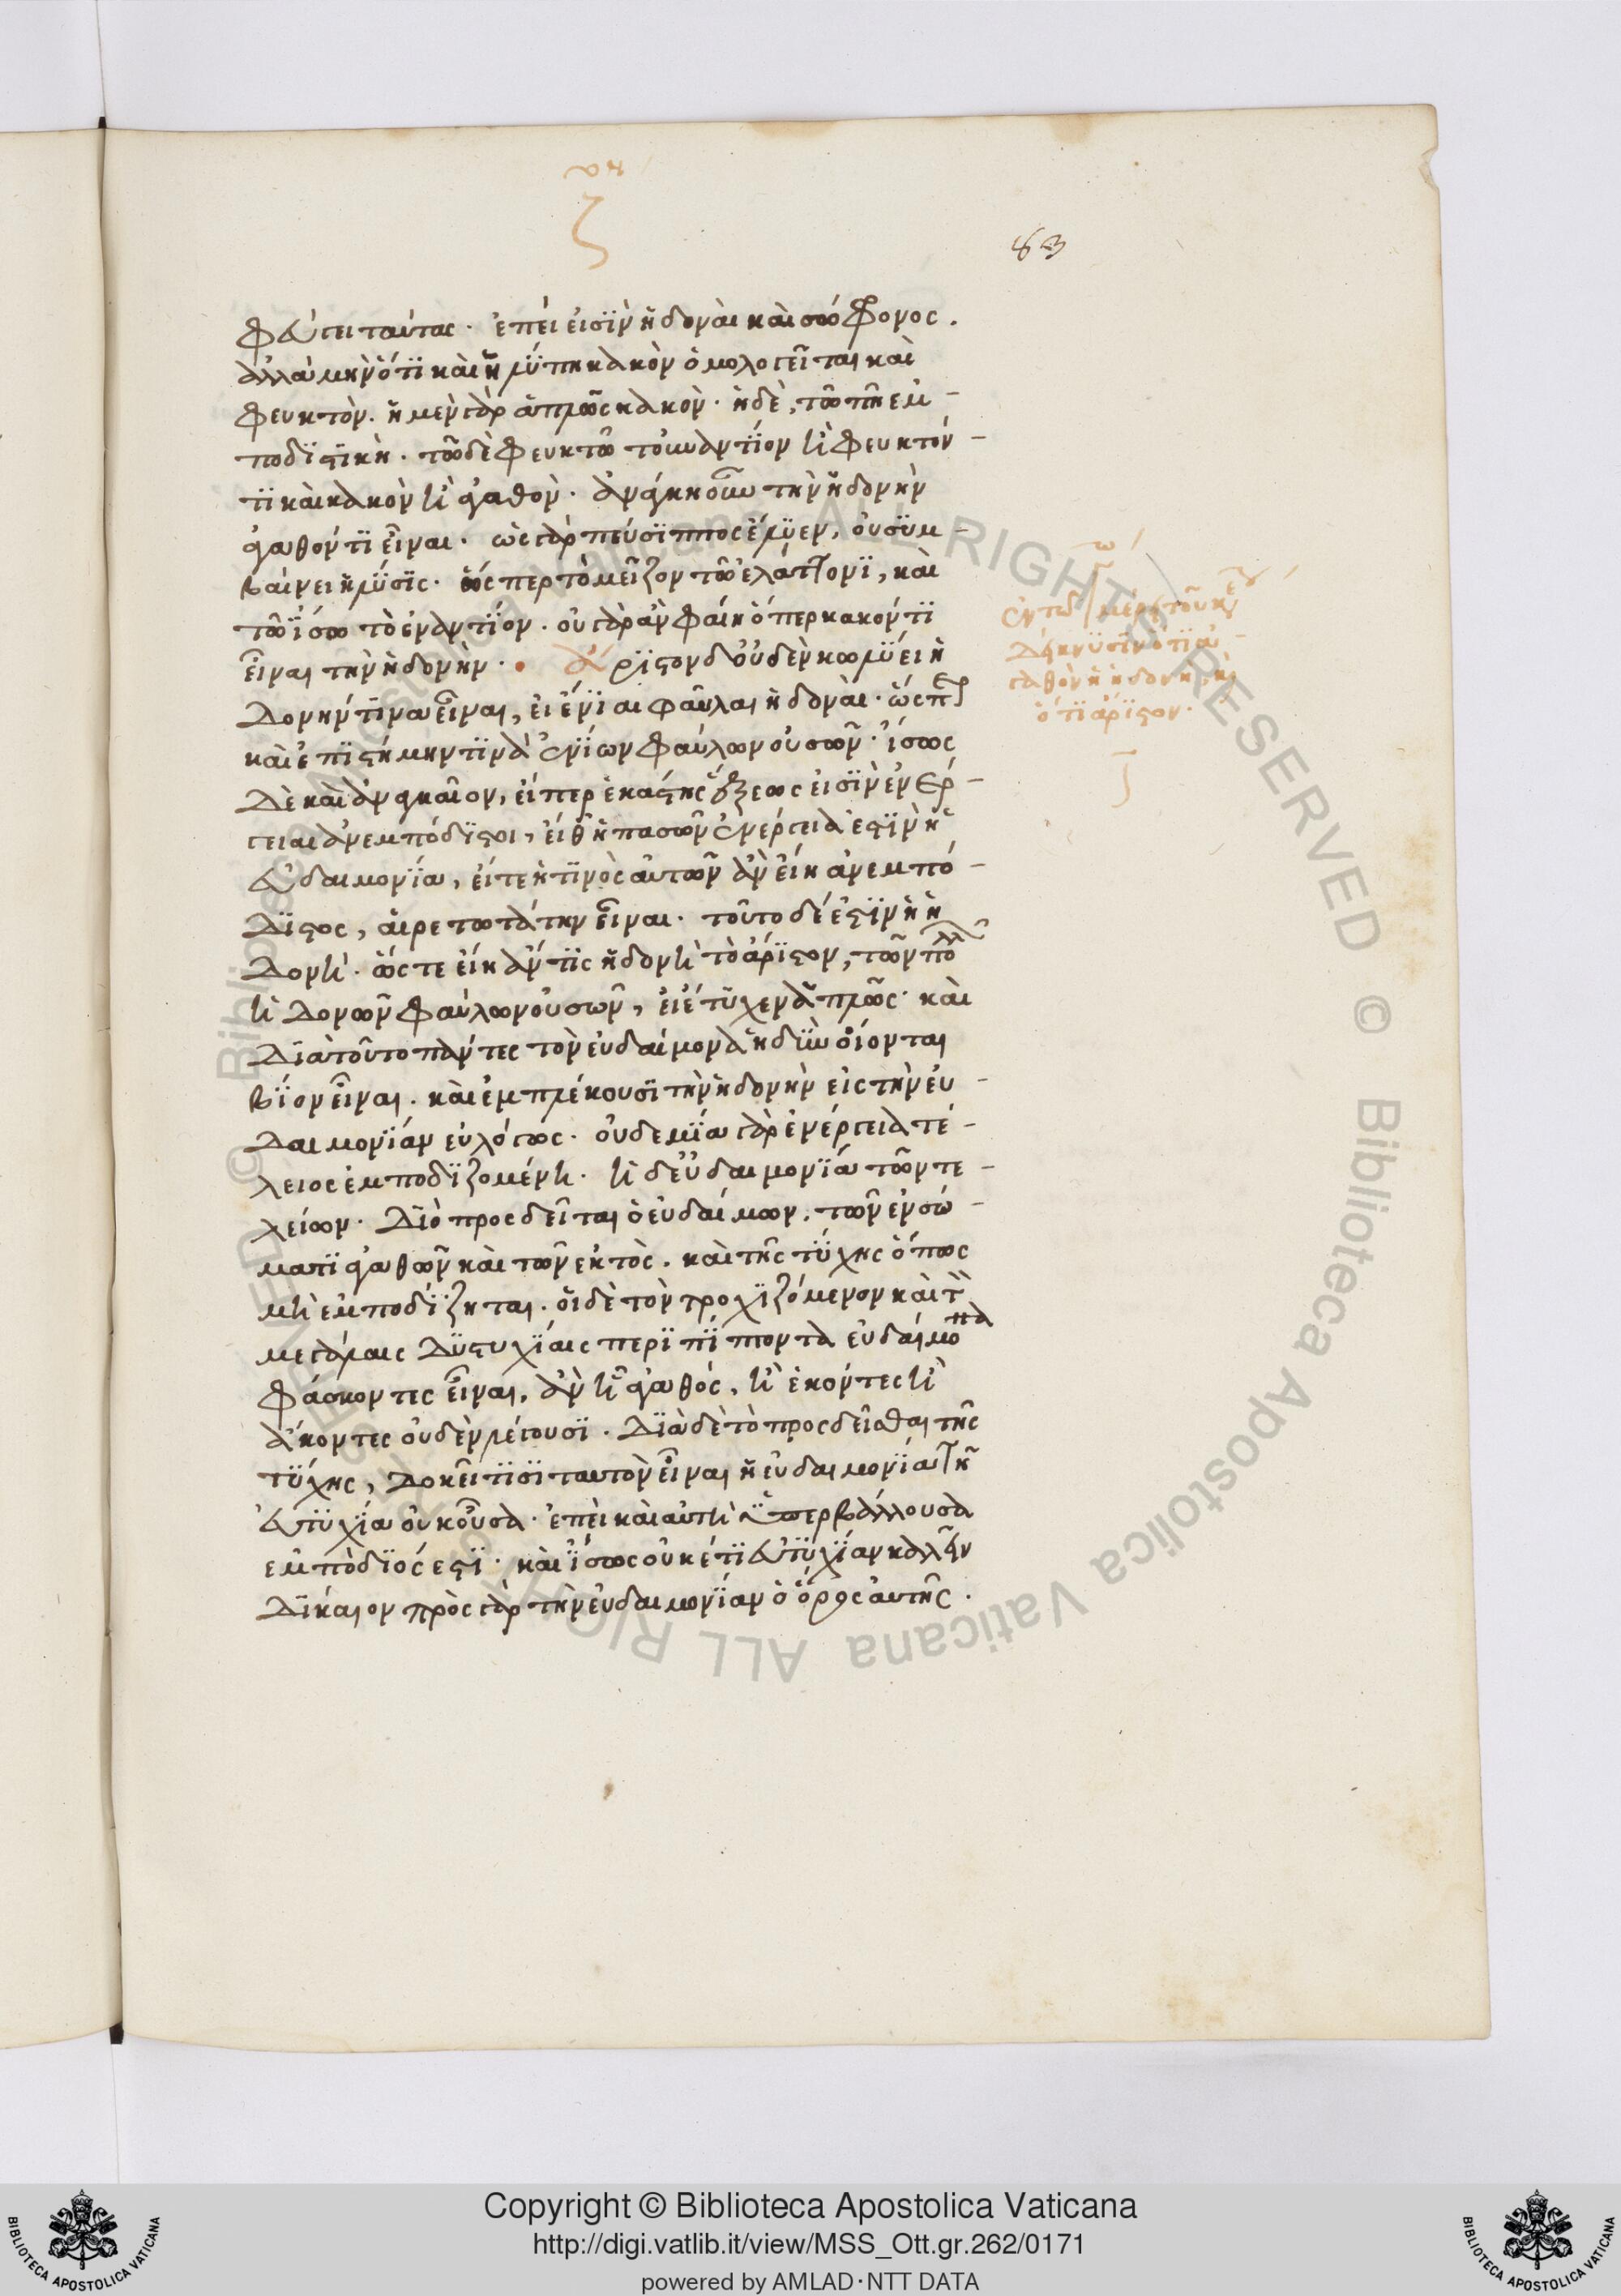 ζ
83
φεύγει ταύτας· ἐπεί εἰσὶν ἡδοναὶ καὶ σώφρονος.
ἀλλὰ μὴν ὅτι καὶ ἡ λύπη κακὸν ὁμολογεῖται καὶ
φευκτόν. ἡ μὲν γὰρ ἁπλῶς κακόν· ἡ δὲ, τῶ πῆ ἐμ-
ποδιστική. τῶ δὲ φευκτῶ τοὐναντίον ἧ φευκτόν
τι καὶ κακὸν ἢ ἀγαθὸν· ἀνάγκη οὖν τὴν ἡδονὴν
ἀγαθόν τι εἶναι. ὡς γὰρ πεύσιππος ἔλυεν, οὐ συμ-
βαίνει ἡ λύσις. ὥσπερ τὸ μεῖζον τῶ ἐλάττονι, καὶ
τῶ ἴσω τὸ ἐναντίον. οὐ γὰρ ἂν φαίη ὅπερ κακόν τι
εἶναι τὴν ἡδονήν. ἄριστον δ' οὐδὲν κωλύει ἡ
δονήν τινα εἶναι, εἰ ἔνιαι φαῦλαι ἡδοναὶ· ὥσπερ
καὶ ἐπιστήμην τινὰ ἐνίων φαύλων οὐσῶν. ἴσως
δὲ καὶ ἀναγκαῖον, εἴπερ ἑκάστης ἕξεώς εἰσιν ἐνέρ-
γειαι ἀνεμπόδιστοι, εἴθ' ἡ πασῶν ἐνέργειά ἐστιν ἡ
εὐδαιμονία, εἴτε ἡ τινὸς αὐτῶν ἂν εἴη ἀνεμπό-
διστος, αἱρετωτάτην εἶναι. τοῦτο δέ ἐστιν ἡ ἡ
δονή. ὥστε εἴη ἄν τις ἡδονὴ τὸ ἄριστον, τῶν πολλῶν
ἡδονῶν φαύλων οὐσῶν, εἰ ἔτυχεν ἁπλῶς· καὶ
διὰ τοῦτο πάντες τὸν εὐδαίμονα ἡδὺν οἴονται
βίον εἶναι. καὶ ἐμπλέκουσι τὴν ἡδονὴν εἰς τὴν εὐ-
δαιμονίαν εὐλόγως. οὐδεμία γὰρ ἐνέργεια τέ-
λειος ἐμποδιζομένη. ἡ δ' εὐδαιμονία τῶν τε-
λείων. διὸ προσδεῖται ὁ εὐδαίμων, τῶν ἐν σώ-
ματι ἀγαθῶν καὶ τῶν ἐκτὸς. καὶ τῆς τύχης ὅπως
μὴ ἐμποδίζηται. οἱ δὲ τὸν τροχιζόμενον καὶ τὸν
μεγάλαις δυστυχίαις περιπίπτοντα εὐδαίμονα
φάσκοντες εἶναι, ἂν ἦ ἀγαθός, ἢ ἑκόντες ἢ
ἄκοντες οὐδὲν λέγουσι. διὰ δὲ τὸ προσδεῖσθαι τῆς
τύχης, δοκεῖ τισὶ ταυτὸν εἶναι ἡ εὐδαιμονία τῆ
εὐτυχία οὐκ οὖσα. ἐπεὶ καὶ αὐτὴ ὑπερβάλλουσα
ἐμπόδιός ἐστι. καὶ ἴσως οὐκέτι εὐτυχίαν καλεῖν
δίκαιον πρὸς γὰρ τὴν εὐδαιμονίαν ὁ ὅρος αὐτῆς.
δείκνυσιν ὅτι ἀ-
γαθὸν ἡ ἡδονὴ, καὶ
ὅτι ἄριστον.
Copyright © Biblioteca Apostolica Vaticana
http://digi.vatlib.it/view/MSS_Ott.gr.262/0171
powered by AMLAD·NTT DATA
BIBLIOTECA APOSTOLICA VATICANA
BIBLIOTECA APOSTOLICA VATICANA
© Biblioteca Apostolica Vaticana ALL RIGHTS RESERVED © Biblioteca Apostolica Vaticana ALL RIGHTS RESERVED